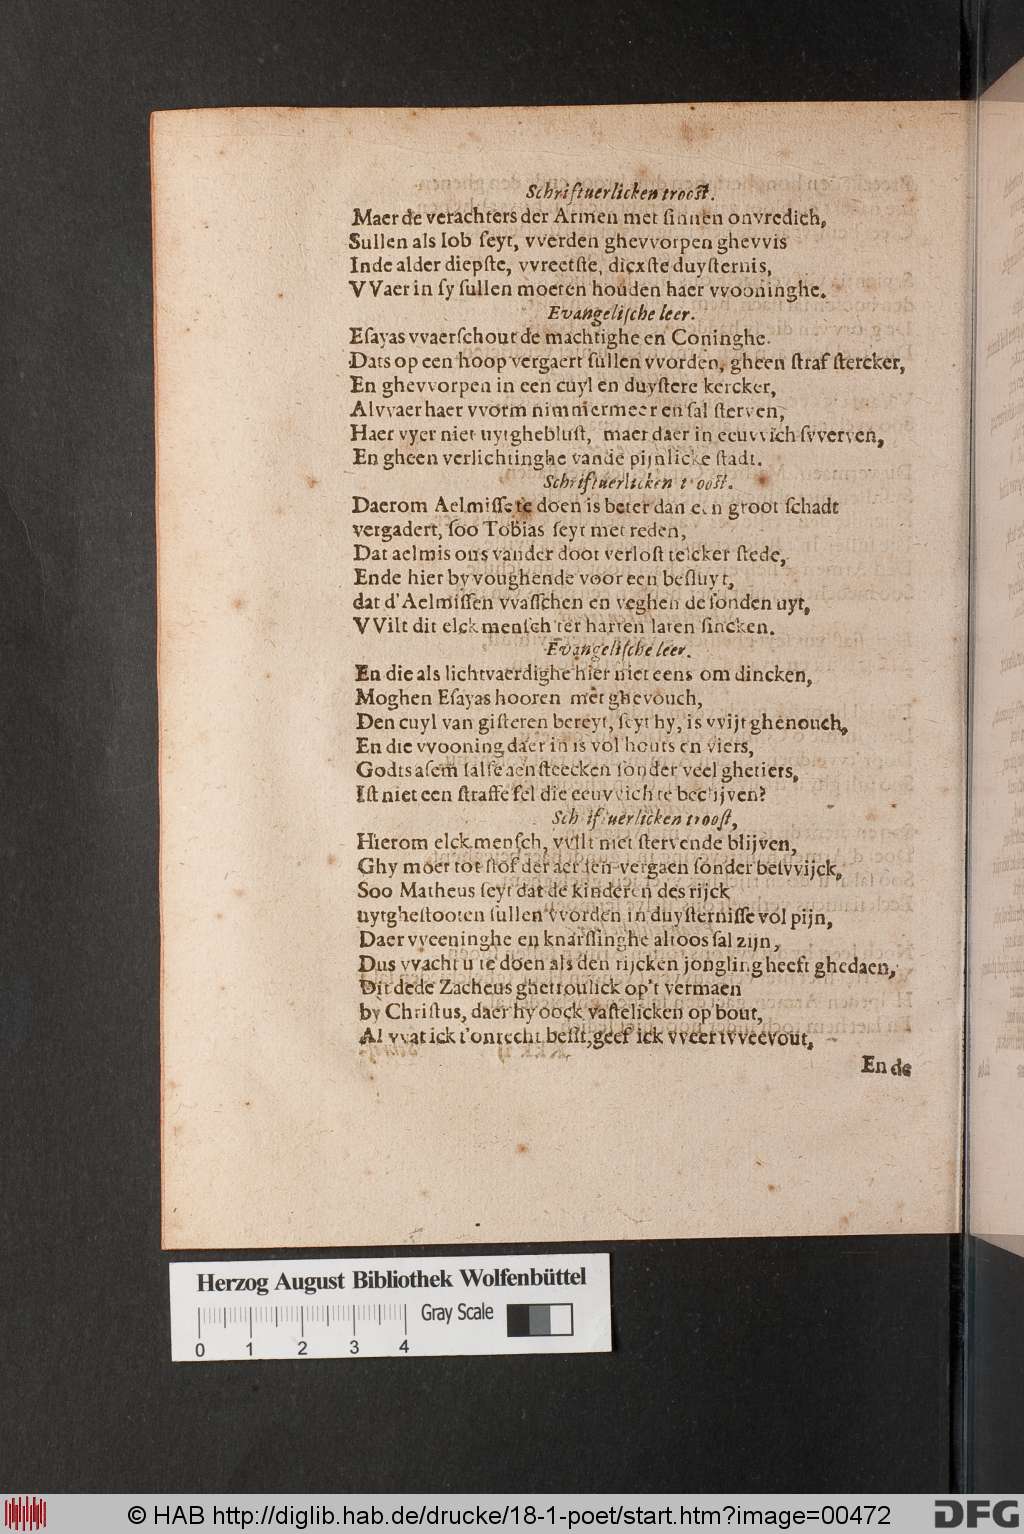 Schriftuerlicken troost.
Maer de verachters der Armen met sinnen onvredich,
Sullen als Iob seyt, vverden ghevvorpen ghevvis
Inde alder diepste, vvreetste, dicxste duysternis,
VVaer in sy sullen moeten houden haer vvooninghe.
Evangelische leer.
Esayas vvaerschout de machtighe en Coninghe.
Dats op een hoop vergaert sullen vvorden, gheen straf stercker,
En ghevvorpen in een cuyl en duystere kercker,
Alvvaer haer vvorm nimmermeer en sal sterven,
Haer vyer niet uytgheblust, maer daer in eeuvvich svverven,
En gheen verlichtinghe vande pijnlicke stadt.
Schriftuerlicken troost.
Daerom Aelmisse te doen is beter dan een groot schadt
vergadert, soo Tobias seyt met reden,
Dat aelmis ons vander doot verlost telcker stede,
Ende hier by voughende voor een besluyt,
dat d'Aelmissen vvasschen en veghen de sonden uyt,
VVilt dit elck mensch ter harten laten sincken.
Evangelische leer.
En die als lichtvaerdighe hier niet eens om dincken,
Moghen Esayas hooren met ghevouch,
Den cuyl van gisteren bereyt, seyt hy, is vvijt ghenouch,
En die vvooning daer in is vol houts en viers,
Godts asem salse aensteecken sonder veel ghetiers,
Ist niet een straffe fel die eeuvvich te beclijven?
Schriftuerlicken troost,
Hierom elck mensch, vvilt niet stervende blijven,
Ghy moet tot stof der aerden vergaen sonder besvvijck,
Soo Matheus seyt dat de kinderen des rijck
uytghestooten sullen vvorden in duysternisse vol pijn,
Daer vveeninghe en knarssinghe altoos sal zijn,
Dus vvacht u te doen als den rijcken jongling heeft ghedaen,
Dit dede Zacheus ghetroulick op't vermaen
by Christus, daer hy oock vastelicken op bout,
Al vvat ick t'onrecht besit, geef ick vveer tvveevout,
Ende
Herzog August Bibliothek Wolfenbüttel
Gray Scale
0 1 2 3 4
© HAB http://diglib.hab.de/drucke/18-1-poet/start.htm?image=00472
DFG